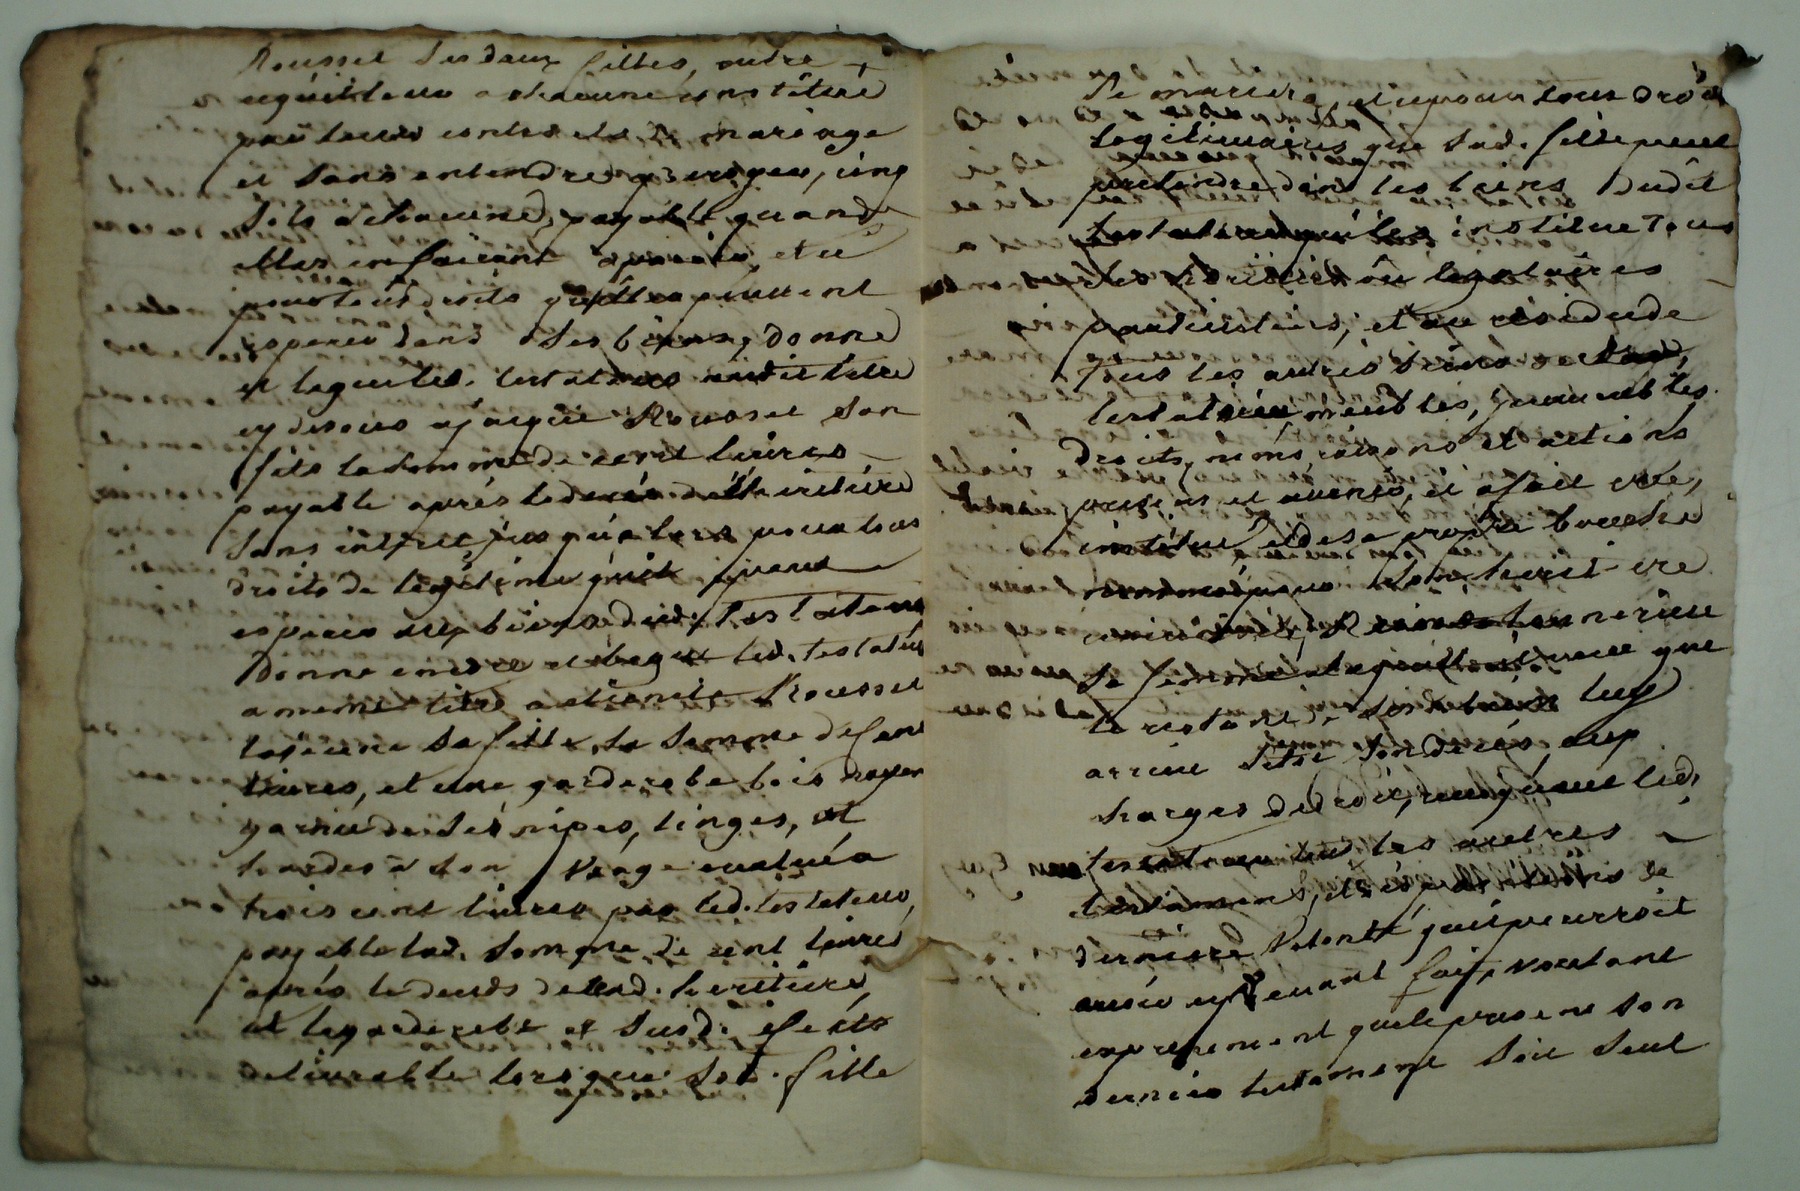 Roussel ses deux filles, outre
ce quil leur a chacune constitué
par leurs contracts de mariage
et sans entendre y deroger, cinq
sols a chacune, payable quand
elles en fairont apparoir, et ce
pour tous droits qu'elles peuvent
esperer dans ses biens, donne
et legue led. testateur audit titre
cy dessus a jacque Roussel son
fils la somme de cent livres
payable après le decés de l'heritiere
sans interet jusqu'alors pour tous
droits de legitime quil peut
esperer aux biens dud. testateur
donne encore et legue led. testateur
a meme titre a Roussel
sa fille, la somme de cent
livres, et une garderobe bois noyer
garnie de ses nipes, linges, et
hardes à son usage evaluée a
trois cent livres par led. testateur,
payable lad. somme de cent livres
après le deces de lad. heritiere,
et la garderobe et susd. effects
delivrable lorsque sad. fille
se mariera, et ce pour tous droits
legitimaires que sad. fille peut
pretendre dans les biens dudit
testateur qu'il les institue tous
ses heritiers ou legataires
particuliers, et au residu de
tous les autres biens dud.
testateur, meubles, immeubles
droits, noms, raisons et actions
presens et avenir, il a fait, crée,
institué et de sa propre bouche
nommé pour son heritiere
universelle,
sa femme, a laquelle il veut que
le restant de ses biens luy
arrive sitot son decés, aux
charges de droit, revoquant led.
testateur tous les autres
testaments, et dispositions de
derniere volonté quil pourroit
avoir cy devant fait, voulant
expressement que le present son
dernier testament soit seul